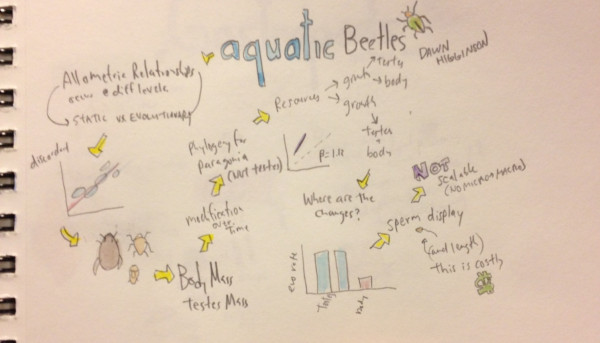 aquatic Beetles
DAWN
HIGGINSON
Allometric Relationships
occur @ diff levels
STATIC vs EVOLUTIONARY
discordant
Body Mass
testes Mass
modification
over
time
Phylogeny for
paragonia
(NOT testes)
Resources
growth
testes
body
growth
testes
+
body
Where are the
changes?
evo rate
body
sperm display
(and length)
this is costly
$
NOT
scalable